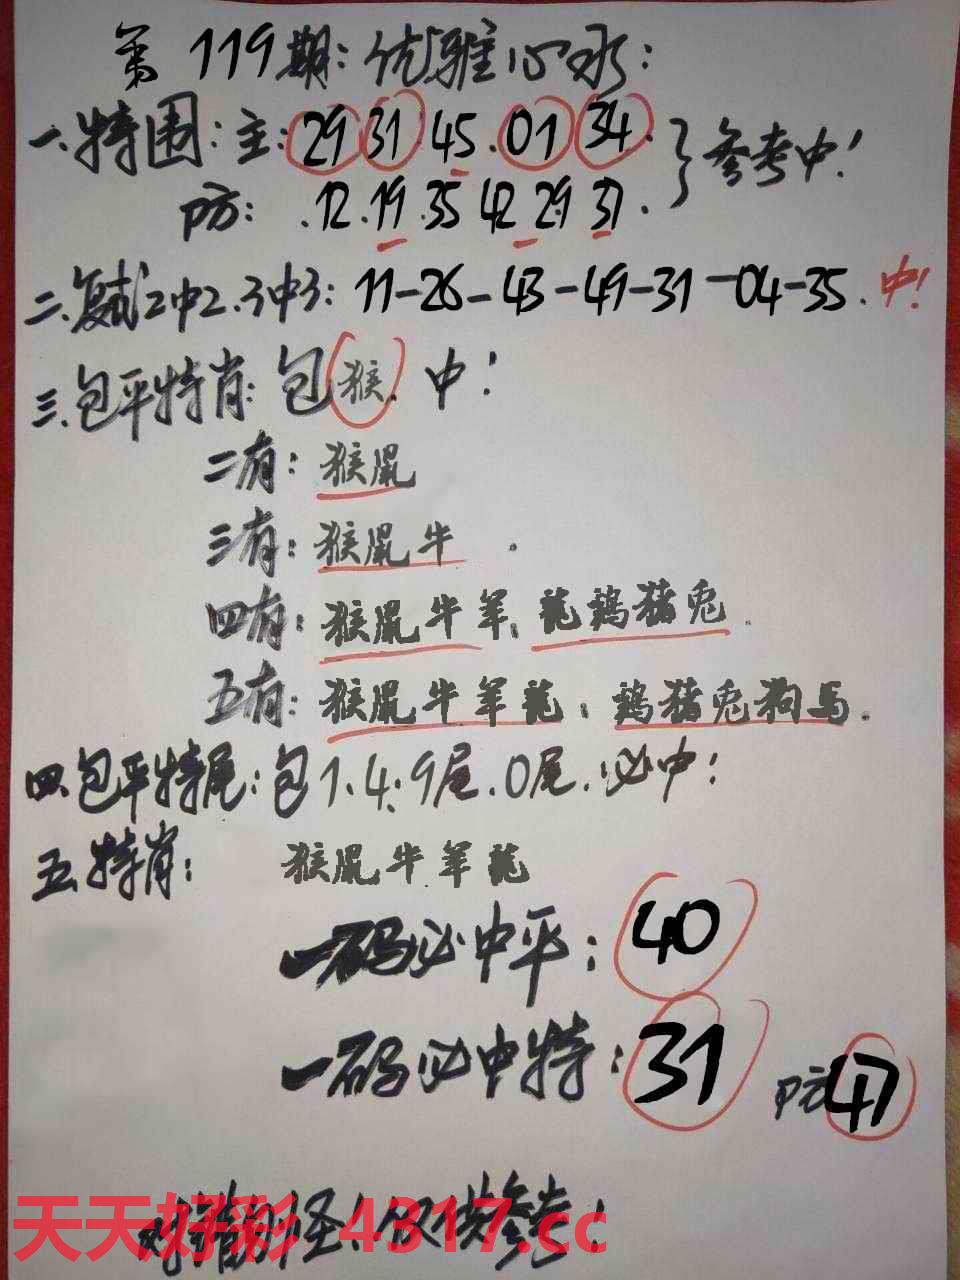 第119期:优雅心水:
一.特围:主:29 31 45.01 34.
参考中!
防:.12.19.35 42 29 31.
二.复试2中2.3中3:11-26-43-49-31-04-35.中!
三.包平特肖:包猴.中!
二有:猴鼠
三有:猴鼠牛.
四有:猴鼠牛羊.龙鸡猪兔.
五有:猴鼠牛羊龙.鸡猪兔狗马.
四.包平特尾:包1.4.9尾.0尾.必中!
五.特肖:猴鼠牛羊龙
一码必中平:40
一码必中特:31 防47
对错别怪!仅供参考!
天天好彩 4317.cc